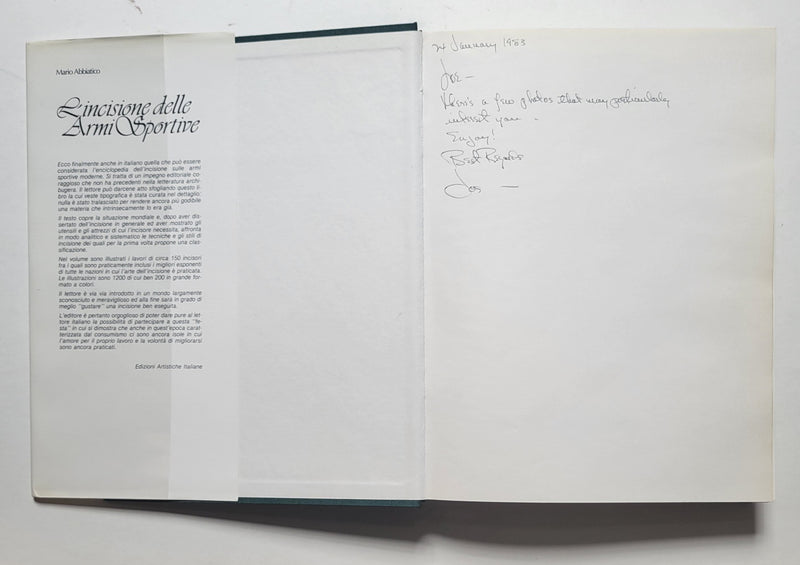 Mario Abbiatico
L'incisione delle
Armi Sportive
Ecco finalmente anche in italiano quella che può essere
considerata l'enciclopedia dell'incisione sulle armi
sportive moderne. Si tratta di un impegno editoriale co-
raggioso che non ha precedenti nella letteratura archi-
bugera. Il lettore può darcene atto sfogliando questo li-
bro la cui veste tipografica è stata curata nei dettaglio:
nulla è stato tralasciato per rendere ancora più godibile
una materia che intrinsecamente lo era già.
Il testo copre la situazione mondiale e, dopo aver dis-
sertato dell'incisione in generale ed aver mostrato gli
utensili e gli attrezzi di cui l'incisore necessita, affronta
in modo analitico e sistematico le tecniche e gli stili di
incisione dei quali per la prima volta propone una clas-
sificazione.
Nel volume sono illustrati i lavori di circa 150 incisori
fra i quali sono praticamente inclusi i migliori esponenti
di tutte le nazioni in cui l'arte dell'incisione è praticata.
Le illustrazioni sono 1200 di cui ben 200 in grande for-
mato a colori.
Il lettore è via via introdotto in un mondo largamente
sconosciuto e meraviglioso ed alla fine sarà in grado di
meglio "gustare" una incisione ben eseguita.
L'editore è pertanto orgoglioso di poter dare pure al let-
tore italiano la possibilità di partecipare a questa "fe-
sta" in cui si dimostra che anche in quest'epoca carat-
terizzata dal consumismo ci sono ancora isole in cui
l'amore per il proprio lavoro e la volontà di migliorarsi
sono ancora praticati.
Edizioni Artistiche Italiane
24 January 1983
Joe —
Here's a few photos that may particularly
interest you.
Enjoy!
Best Regards
Joe —